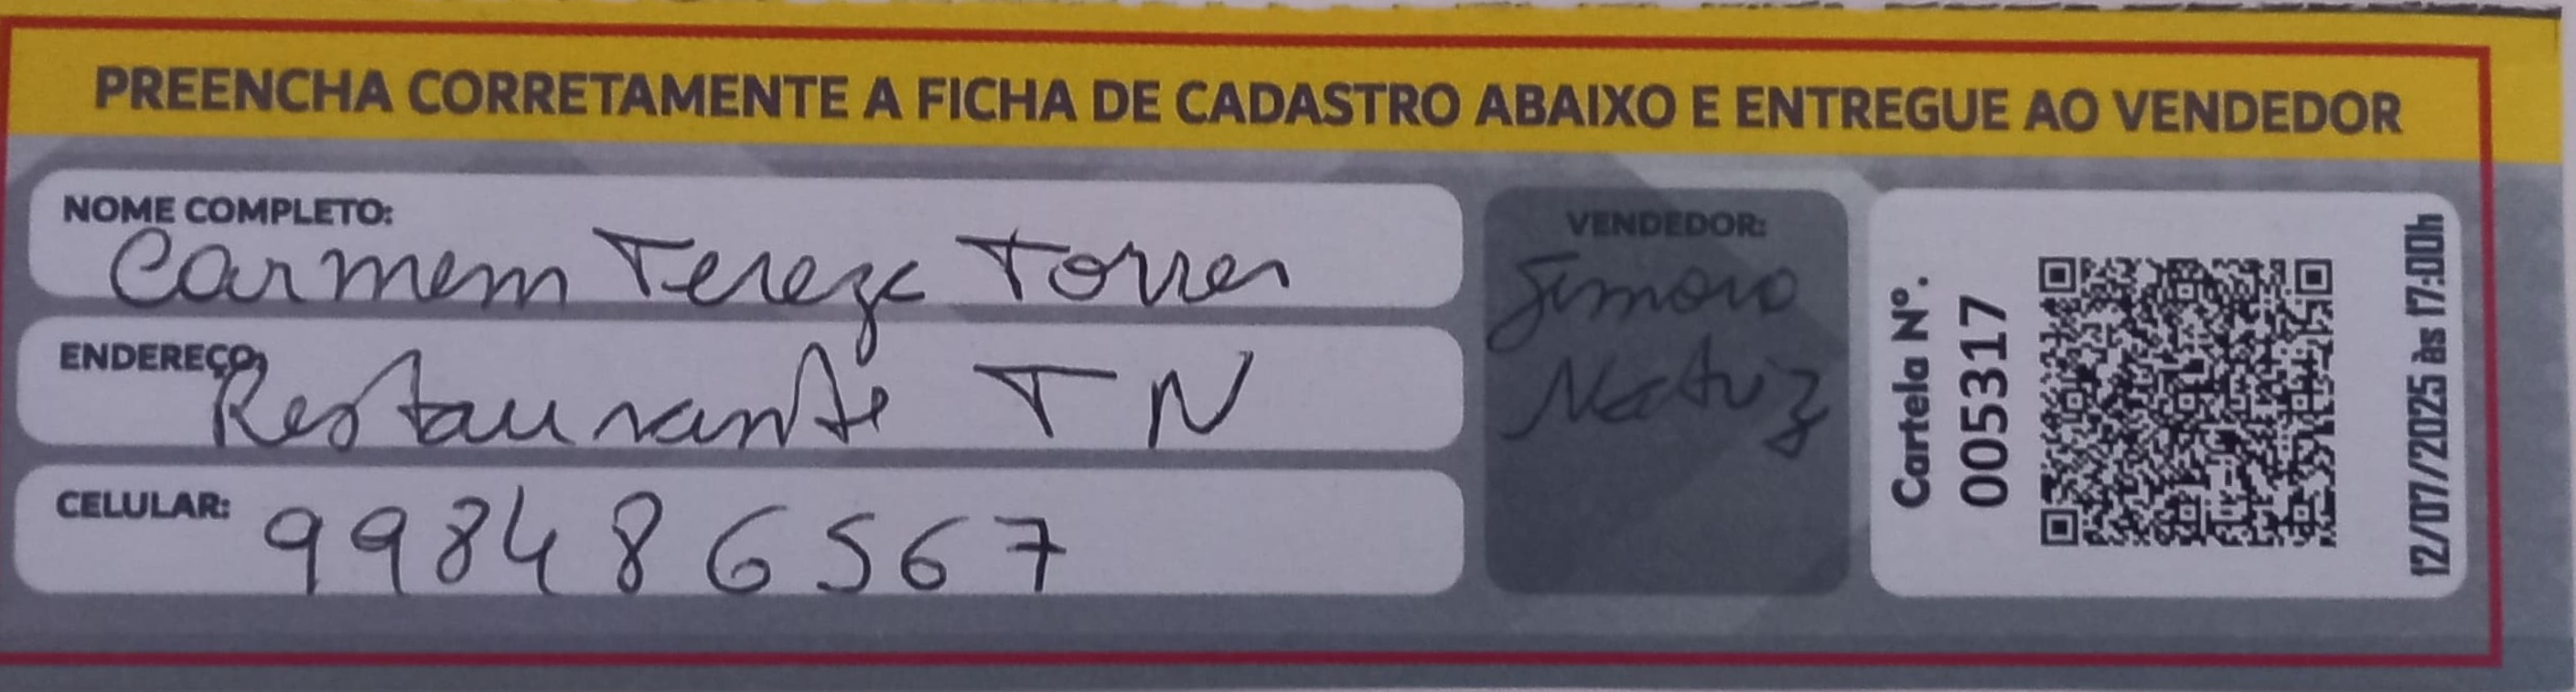 PREENCHA CORRETAMENTE A FICHA DE CADASTRO ABAIXO E ENTREGUE AO VENDEDOR
NOME COMPLETO:
Carmem Tereza Torres
ENDEREÇO:
Restaurante TN
CELULAR:
998486567
VENDEDOR:
Cartela Nº.
005317
12/07/2025 às 17:00h